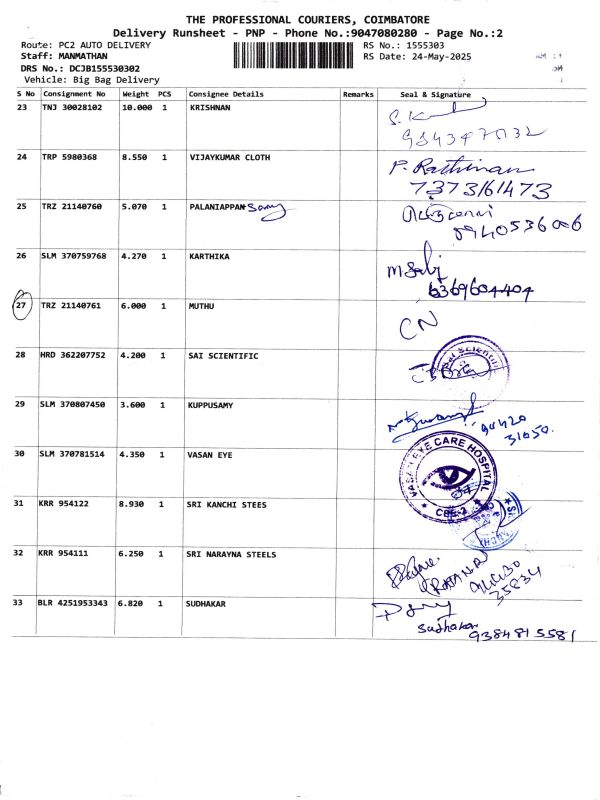 THE PROFESSIONAL COURIERS, COIMBATORE
Delivery Runsheet - PNP - Phone No.:9047080280 - Page No.:2
Route: PC2 AUTO DELIVERY RS No.: 1555303
Staff: MANMATHAN RS Date: 24-May-2025
DRS No.: DCJB155530302
Vehicle: Big Bag Delivery
S No Consignment No Weight PCS Consignee Details Remarks Seal & Signature
23 TNJ 30028102 10.000 1 KRISHNAN
24 TRP 5980368 8.550 1 VIJAYKUMAR CLOTH P. Rathinam
7373161473
25 TRZ 21140760 5.070 1 PALANIAPPAN Samy
0940536006
26 SLM 370759768 4.270 1 KARTHIKA
6369604404
27 TRZ 21140761 6.000 1 MUTHU CN
28 HRD 362207752 4.200 1 SAI SCIENTIFIC Sai Scientific
29 SLM 370807450 3.600 1 KUPPUSAMY
90420
31050.
30 SLM 370781514 4.350 1 VASAN EYE VASAN EYE CARE HOSPITAL
CBE-2
31 KRR 954122 8.930 1 SRI KANCHI STEES
32 KRR 954111 6.250 1 SRI NARAYNA STEELS
35834
33 BLR 4251953343 6.820 1 SUDHAKAR
Sudhakar
9384815581